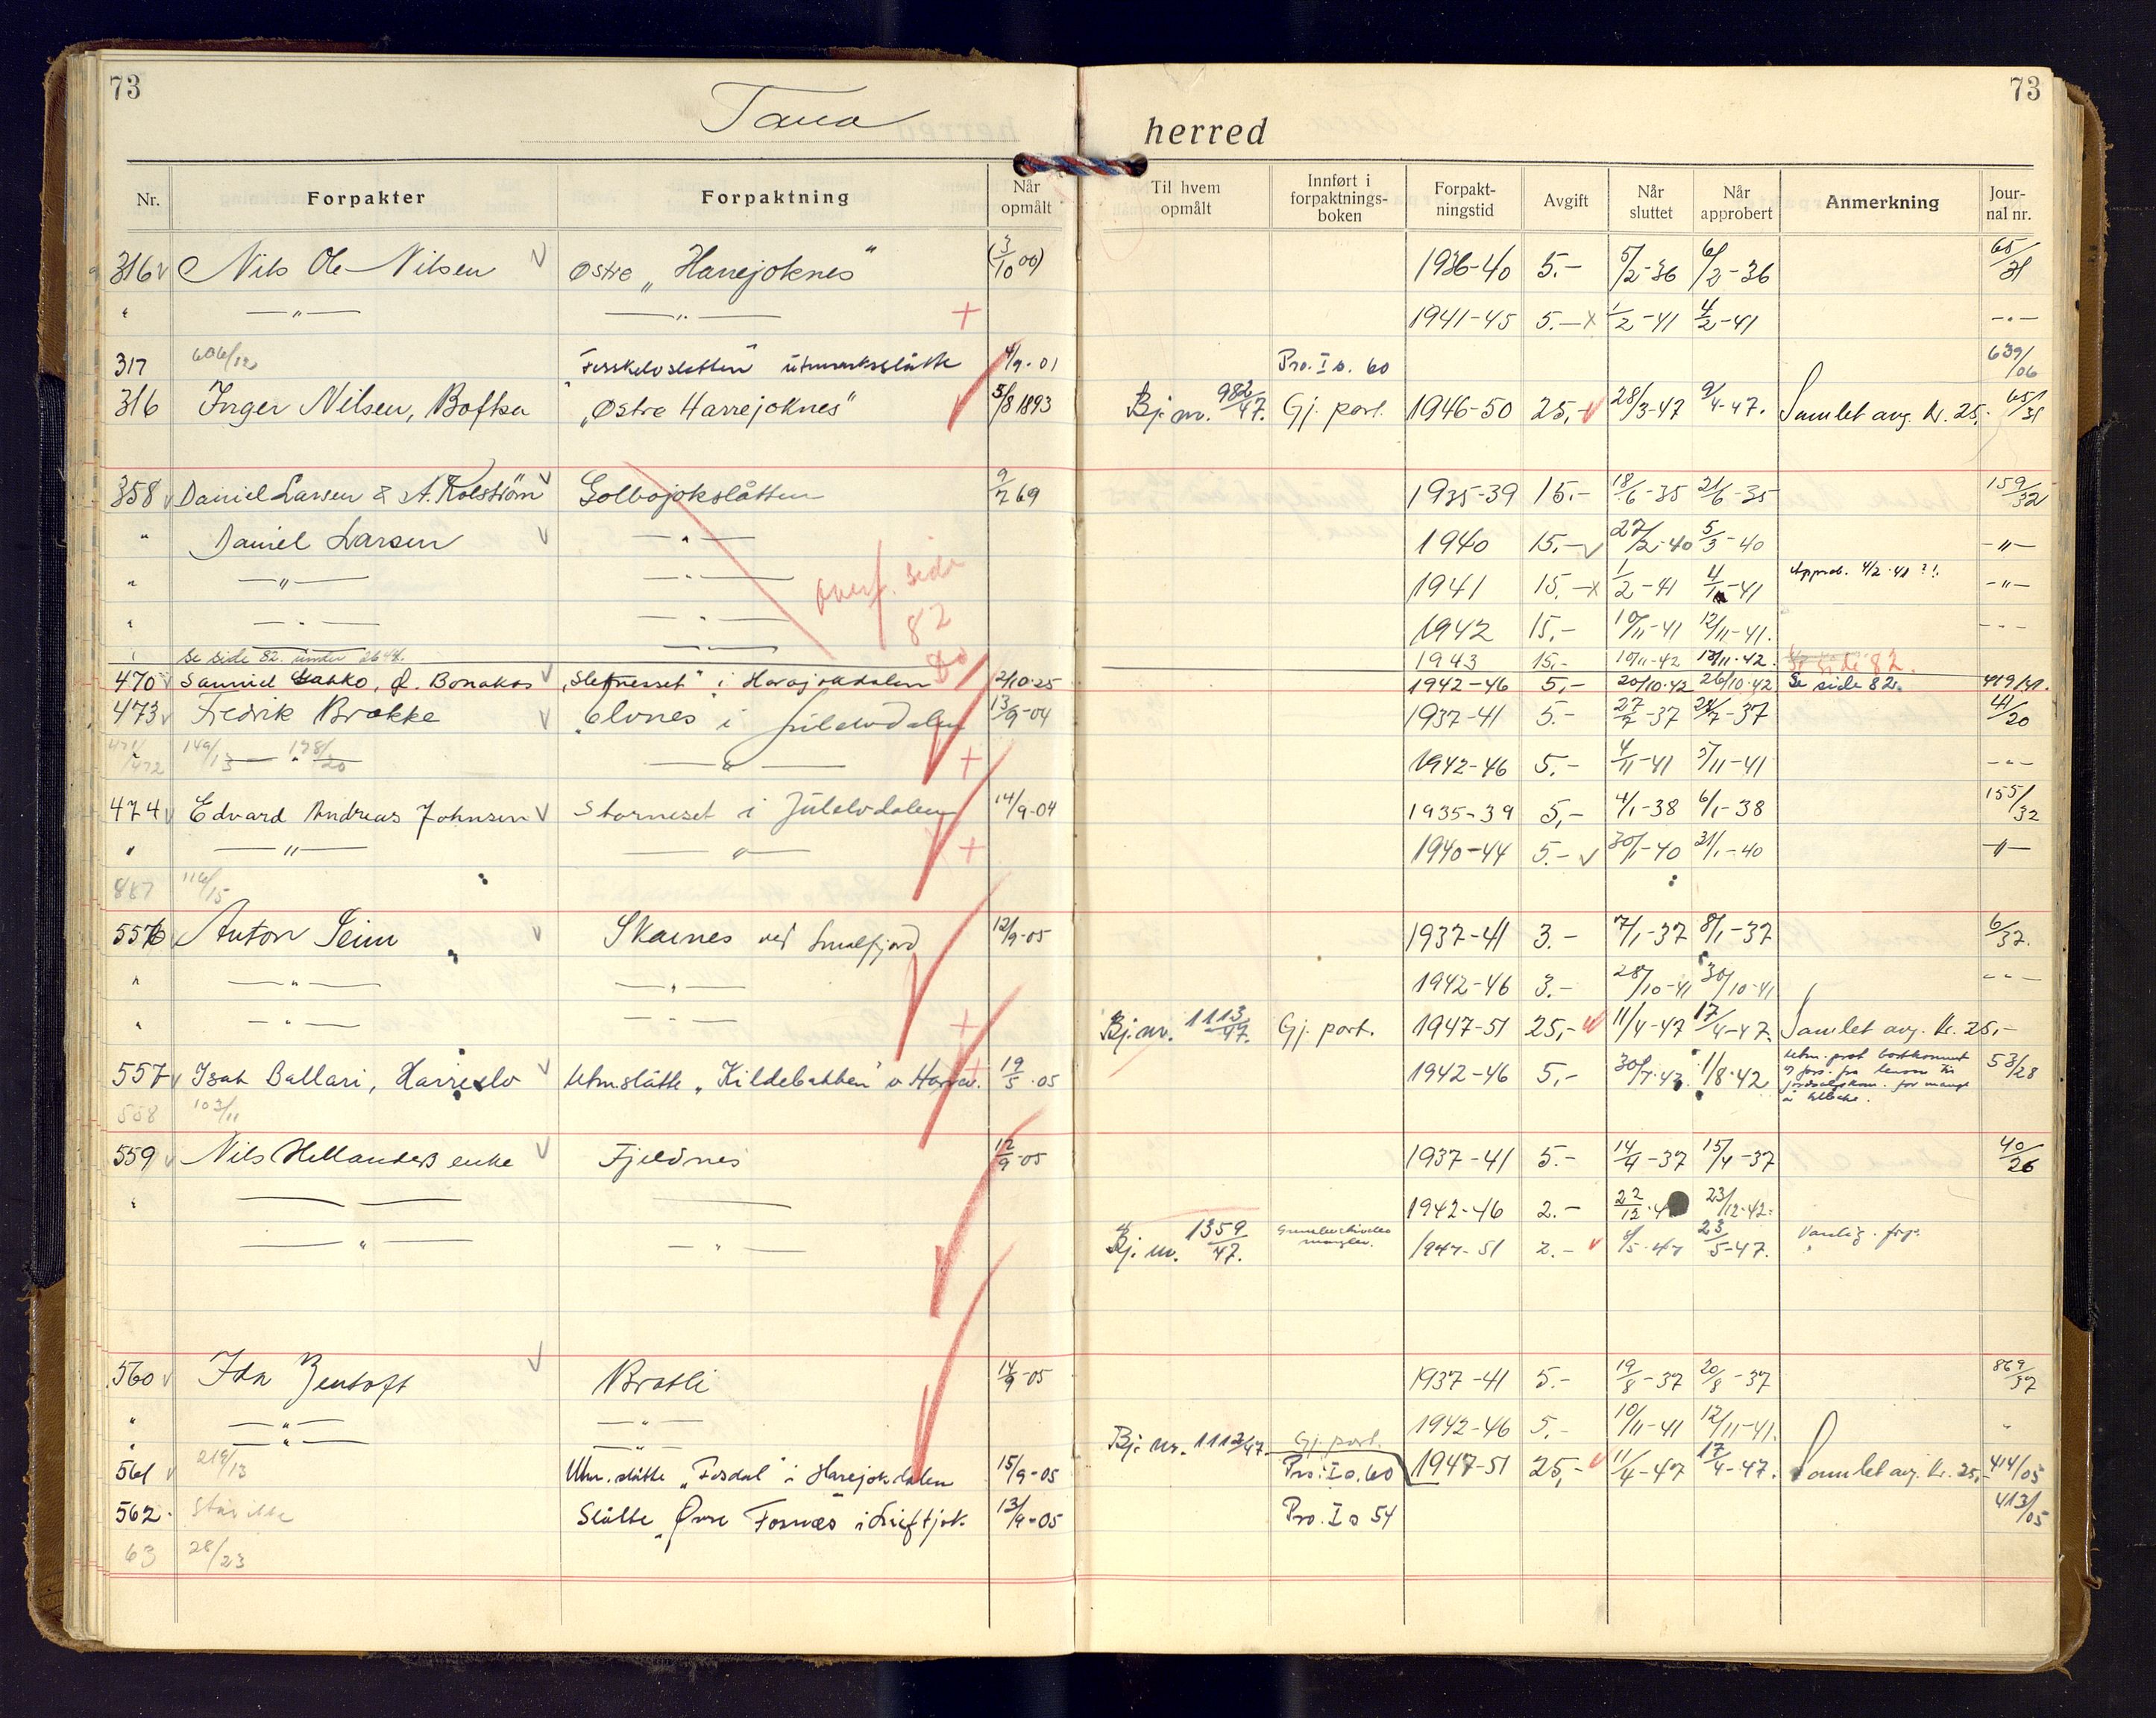 73
73
Tana herred
Nr. Forpakter Forpaktning Når opmålt Til hvem opmålt Innført i forpaktnings-boken Forpakt-ningstid Avgift Når sluttet Når approbert Anmerkning Jour-nal nr.
316 Nils Ole Nilsen Østre „Harrejoknes" (3/10 06) 1936-40 5.- 5/2-36 6/2-36 65/31
" —"— —"— + 1941-45 5.- x 1/2-41 4/2-41 —"—
317 606/12 utmarksslåtte 4/9-01 Pro. I s. 60 639/06
316 Inger Nilsen, Boftsa „Østre Harrejoknes" 5/8 1893 Bj. nr. 982/47. Gj. part. 1946-50 25,- 28/3-47 9/4-47. Samlet avg. kr. 25,- 65/31
358 Daniel Larsen & A. Kolström Golbojokslåtten 9/7 69 1935-39 15.- 18/6-35 21/6-35 159/32
" Daniel Larsen —"— 1940 15.- 27/2-40 5/3-40 —"—
" —"— —"— overf. side 82 1941 15.- x 1/2-41 4/-41 Approb. 4/2-41 ?!. —"—
" —"— —"— 1942 15,- 10/11-41 12/11-41. —"—
" se side 82. under 2648. —"— 1943 15,- 10/11-42 13/11-42. Se side 82.
470 Samuel , Ø. Bonakas „Sletnesset" i Harajokdalen 2/10-25 1942-46 5,- 20/10-42 26/10-42 Se side 82. 419/41.
473 Fredrik Brakke „Elvnes i Julelvdalen 13/9-04 1937-41 5.- 27/7-37 28/7-37 41/20
471/472 149/13 —"— 198/20 —"— + 1942-46 5.- 4/11-41 5/11-41 —"—
474 Edvard Andreas Johnsen Storneset i Julelvdalen 14/9-04 1935-39 5,- 4/1-38 6/1-38 155/32
" —"— —"— + 1940-44 5.- 30/1-40 31/1-40 —"—
887 116/15
556 Anton Seim Skaines ved Smalfjord 12/9-05 1937-41 3.- 7/1-37 8/1-37 6/37.
" —"— —"— 1942-46 3.- 28/10-41 30/10-41 —"—
" —"— —"— + Bj. nr. 1113/47. Gj. part. 1947-51 25,- 11/4-47 17/4-47. Samlet avg. kr. 25,-
557 Isak Ballari, Harrelv Utmslåtte „Kildebakken" v 19/5-05 1942-46 5,- 30/7-42. 1/8-42 53/28
558 103/11
559 Nils Hellanders enke Fjeldnes 12/9-05 1937-41 5.- 14/4-37 15/4-37 40/26
" —— —— 1942-46 2.- 22/12-4 23/12-42.
—"— —"— Bj. nr. 1359/47. mangler. 1947-51 2.- 8/5-47 23/5-47. Vanlig.
560 Ida Zentoft Bratli 14/9-05 1937-41 5.- 19/8-37 20/8-37 869/37
" —"— —"— 1942-46 5.- 10/11-41 12/11-41. "
" —"— —"— Bj. nr. 1112/47. Gj. part. 1947-51 25,- 11/4-47 17/4-47. Samlet avg. kr. 25,-
561 219/13 Utm. slåtte „Fosdal" i Harejokdalen 15/9-05 Pro. I s. 60 414/05
562. Står ikke Slåtte „Øvre Fosnæs i Luftjok 13/9-05 Pro. I s 54 413/05
63 28/23